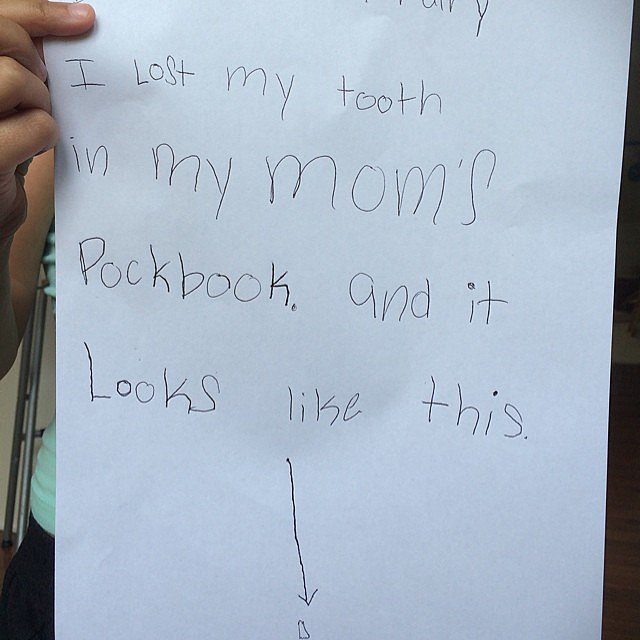 I Lost my tooth
in my mom's
Pockbook. and it
Looks like this.